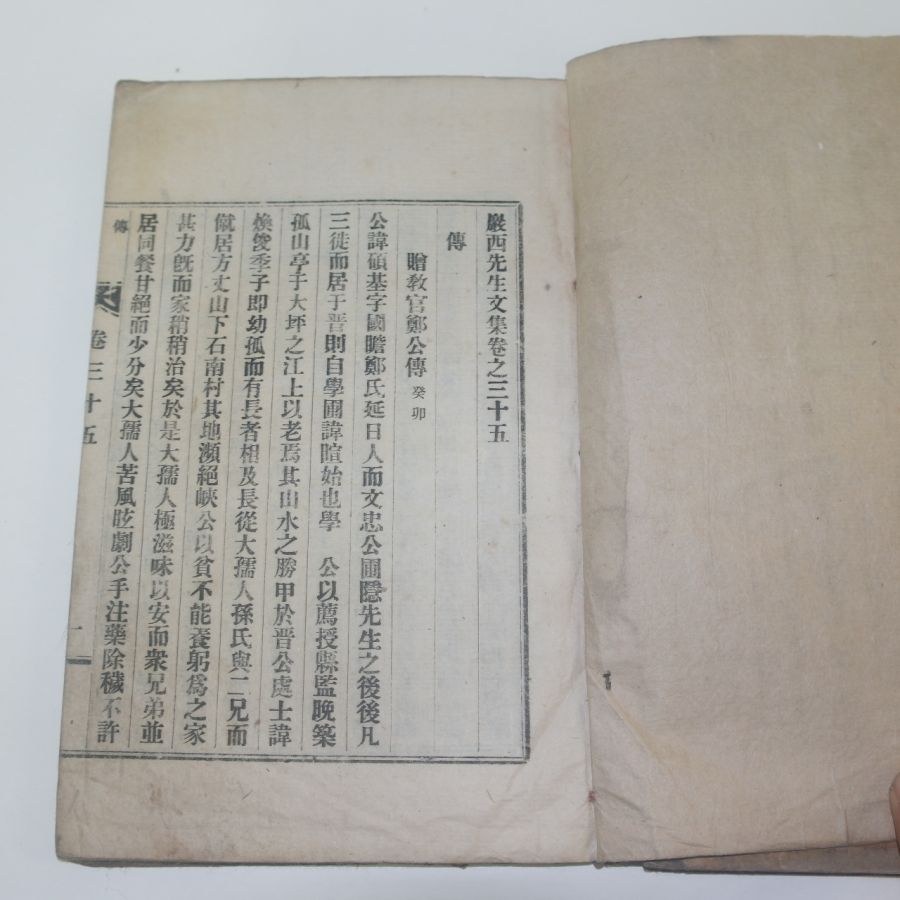 巖西先生文集卷之三十五
傳
贈敎官鄭公傳 癸卯
公諱碩基字國瞻鄭氏延日人而文忠公圃隱先生之後後凡
三徙而居于晋則自學圃諱暄始也學 公以薦授縣監晚築
孤山亭于大坪之江上以老焉其山水之勝甲於晋公處士諱
煥㕙季子卽幼孤而有長者相及長從大孺人孫氏與二兄而
僦居方丈山下石南村其地瀕絕峽公以貧不能養躬爲之家
甚力旣而家稍稍治矣於是大孺人極滋味以安而衆兄弟並
居同餐甘絕而少分矣大孺人苦風眩劇公手注藥除穢不許
傳
卷三十五
一